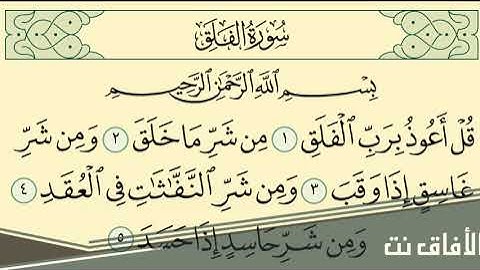 سُورَةُ الْفَلَقِ
بِسْمِ اللَّهِ الرَّحْمَٰنِ الرَّحِيمِ
قُلْ أَعُوذُ بِرَبِّ الْفَلَقِ ١ مِن شَرِّ مَا خَلَقَ ٢ وَمِن شَرِّ
غَاسِقٍ إِذَا وَقَبَ ٣ وَمِن شَرِّ النَّفَّاثَاتِ فِي الْعُقَدِ ٤
وَمِن شَرِّ حَاسِدٍ إِذَا حَسَدَ ٥
الأفاق نت